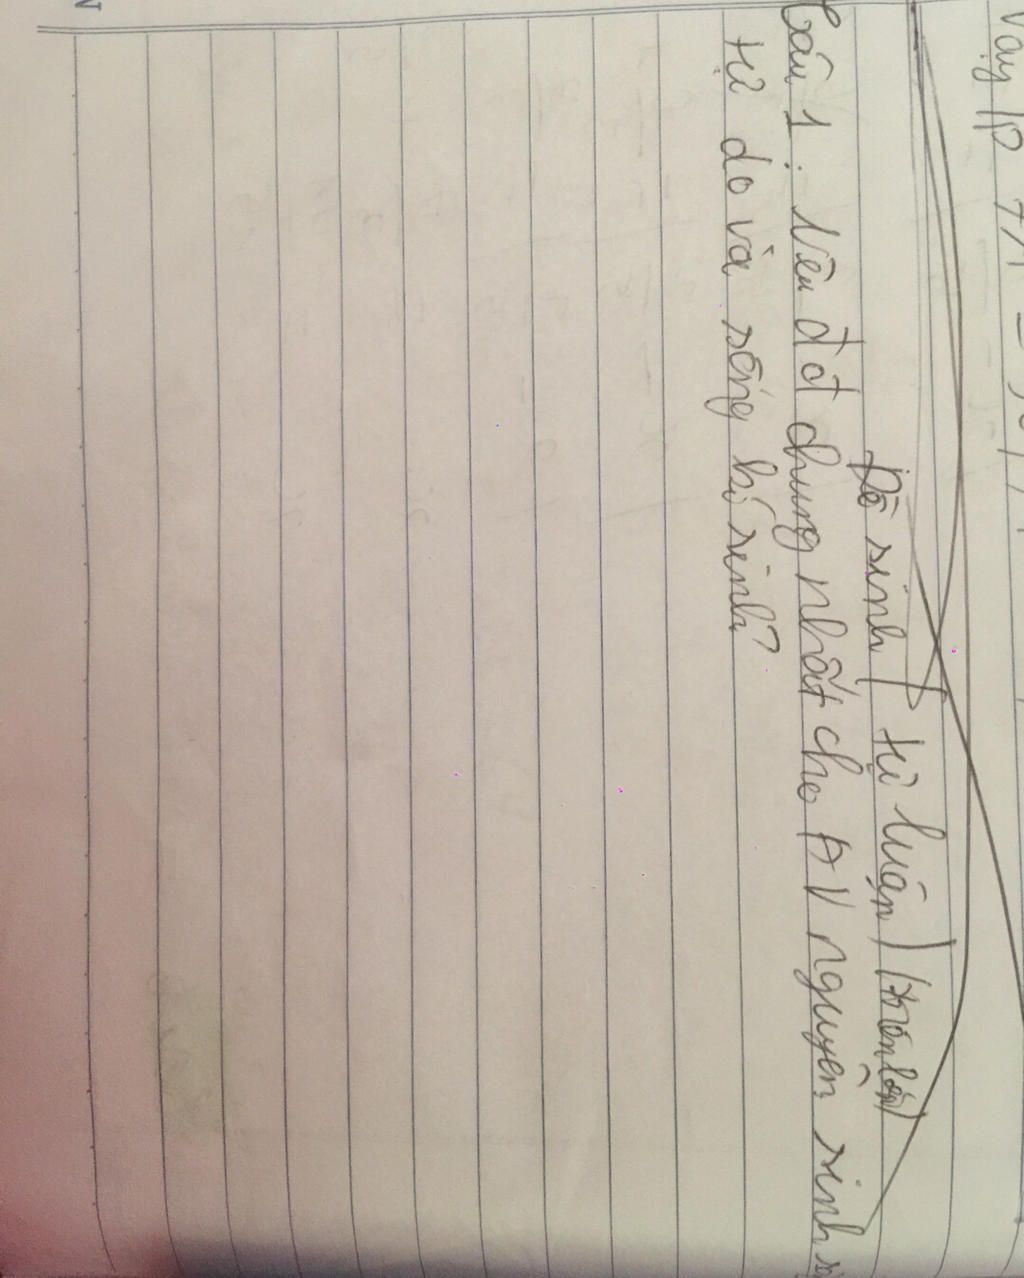 Vậy
Đề sinh ( tự luận ) (trên lớp)
Câu 1 : Nêu đ đ chung nhất cho ĐV nguyên sinh
tự do và sống kí sinh?